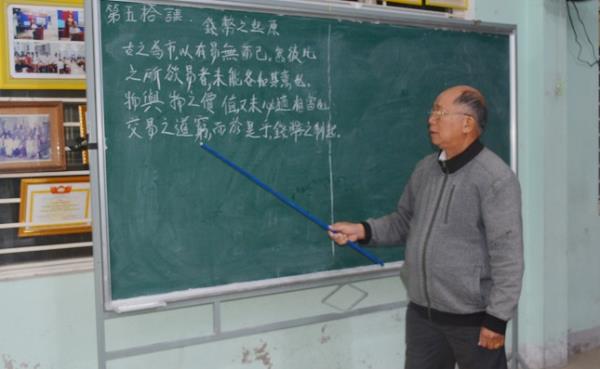 第五拾課.
錢幣之起原
古之為市,以有易無而已,然彼此
之所欲易者,未能各如其意也.
物與物之價值,又未必適相當也.
交易之道窮,而於是乎錢幣之制起。